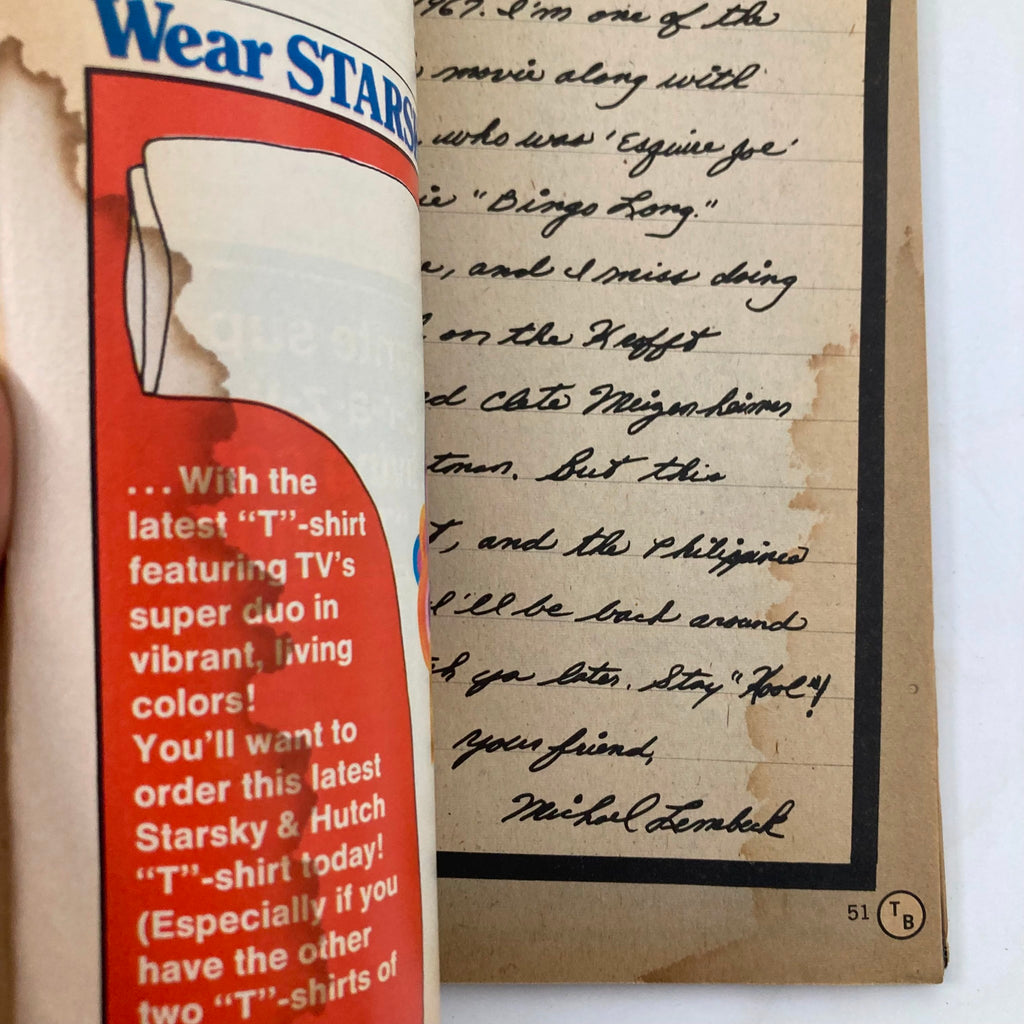 Wear STARS
... With the
latest “T”-shirt
featuring TV’s
super duo in
vibrant, living
colors!
You’ll want to
order this latest
Starsky & Hutch
“T”-shirt today!
(Especially if you
have the other
two “T”-shirts of
1967. I'm one of the
movie along with
who was 'Esquire Joe'
"Bingo Long."
, and I miss doing
on the Krofft
clete Meizenheimer
. But this
, and the Philippines
I'll be back around
ya later. Stay "Kool"!
Your friend,
Michael Lembeck
51 TB